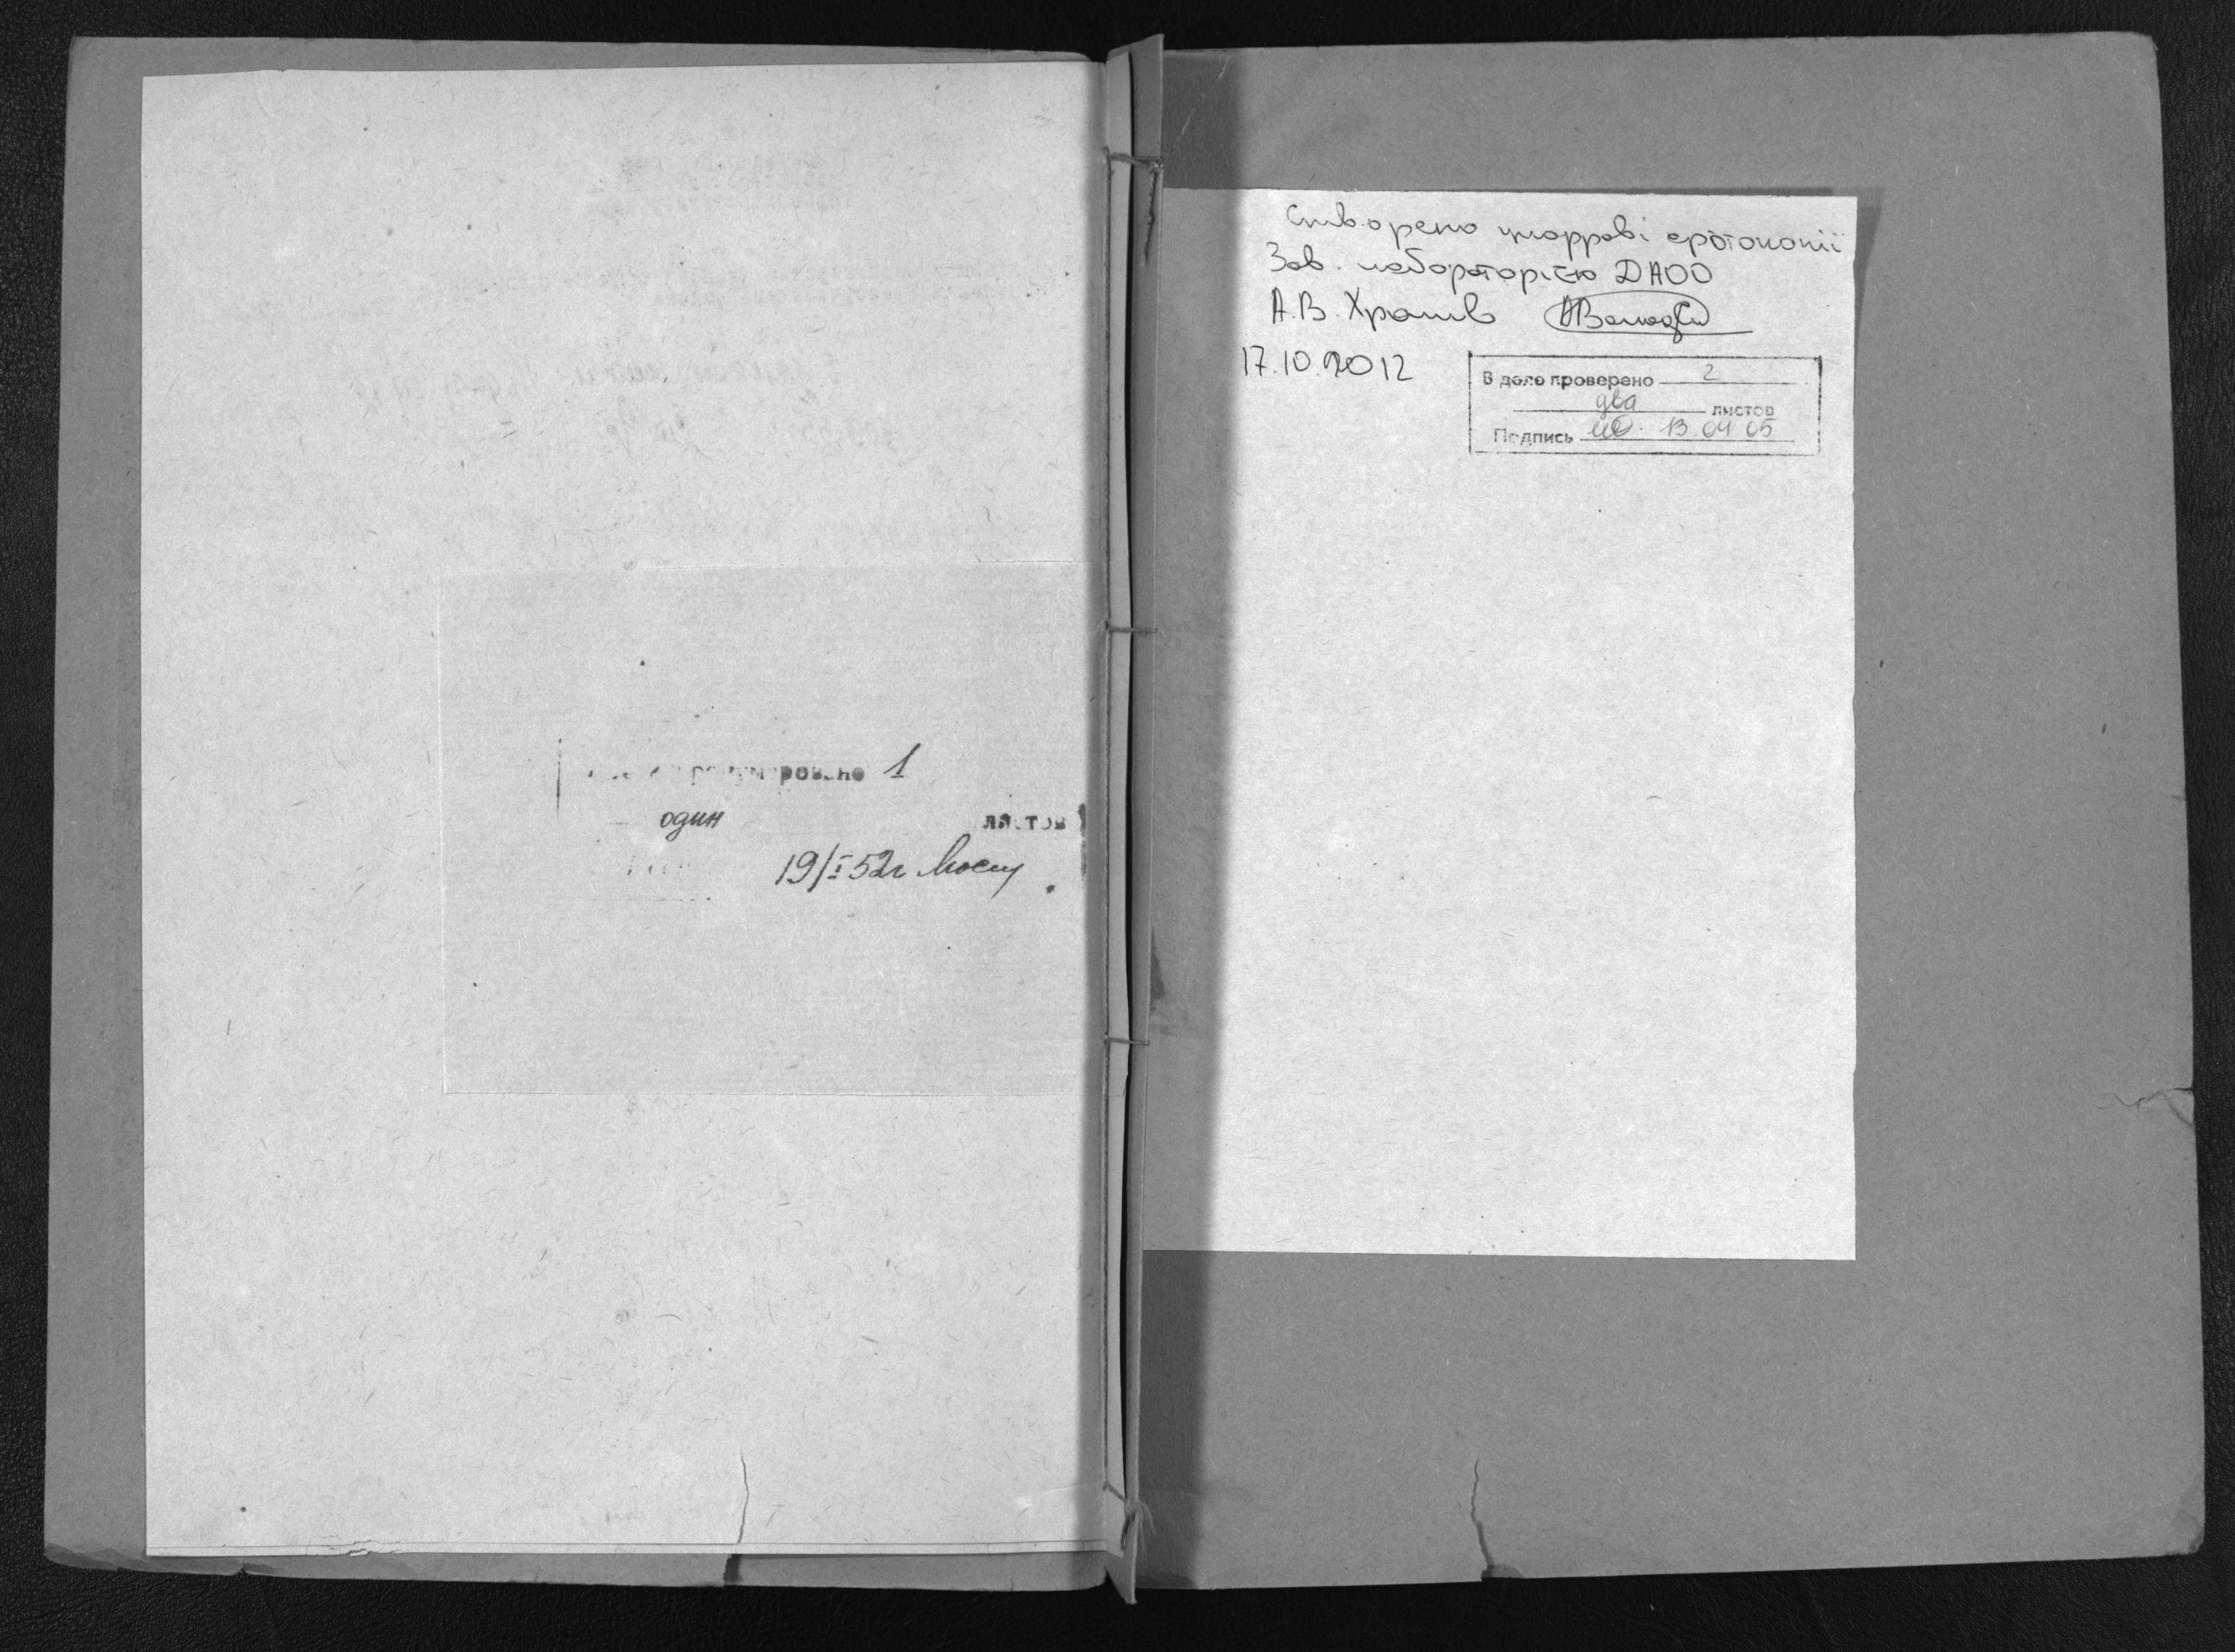 пронумеровано 1
один листов
19/I 52г
Створено цифрові фотокопії
Зав. лабораторією ДАОО
А.В. Хромів
17.10.2012
В деле проверено 2
два листов
Подпись 13 04 05